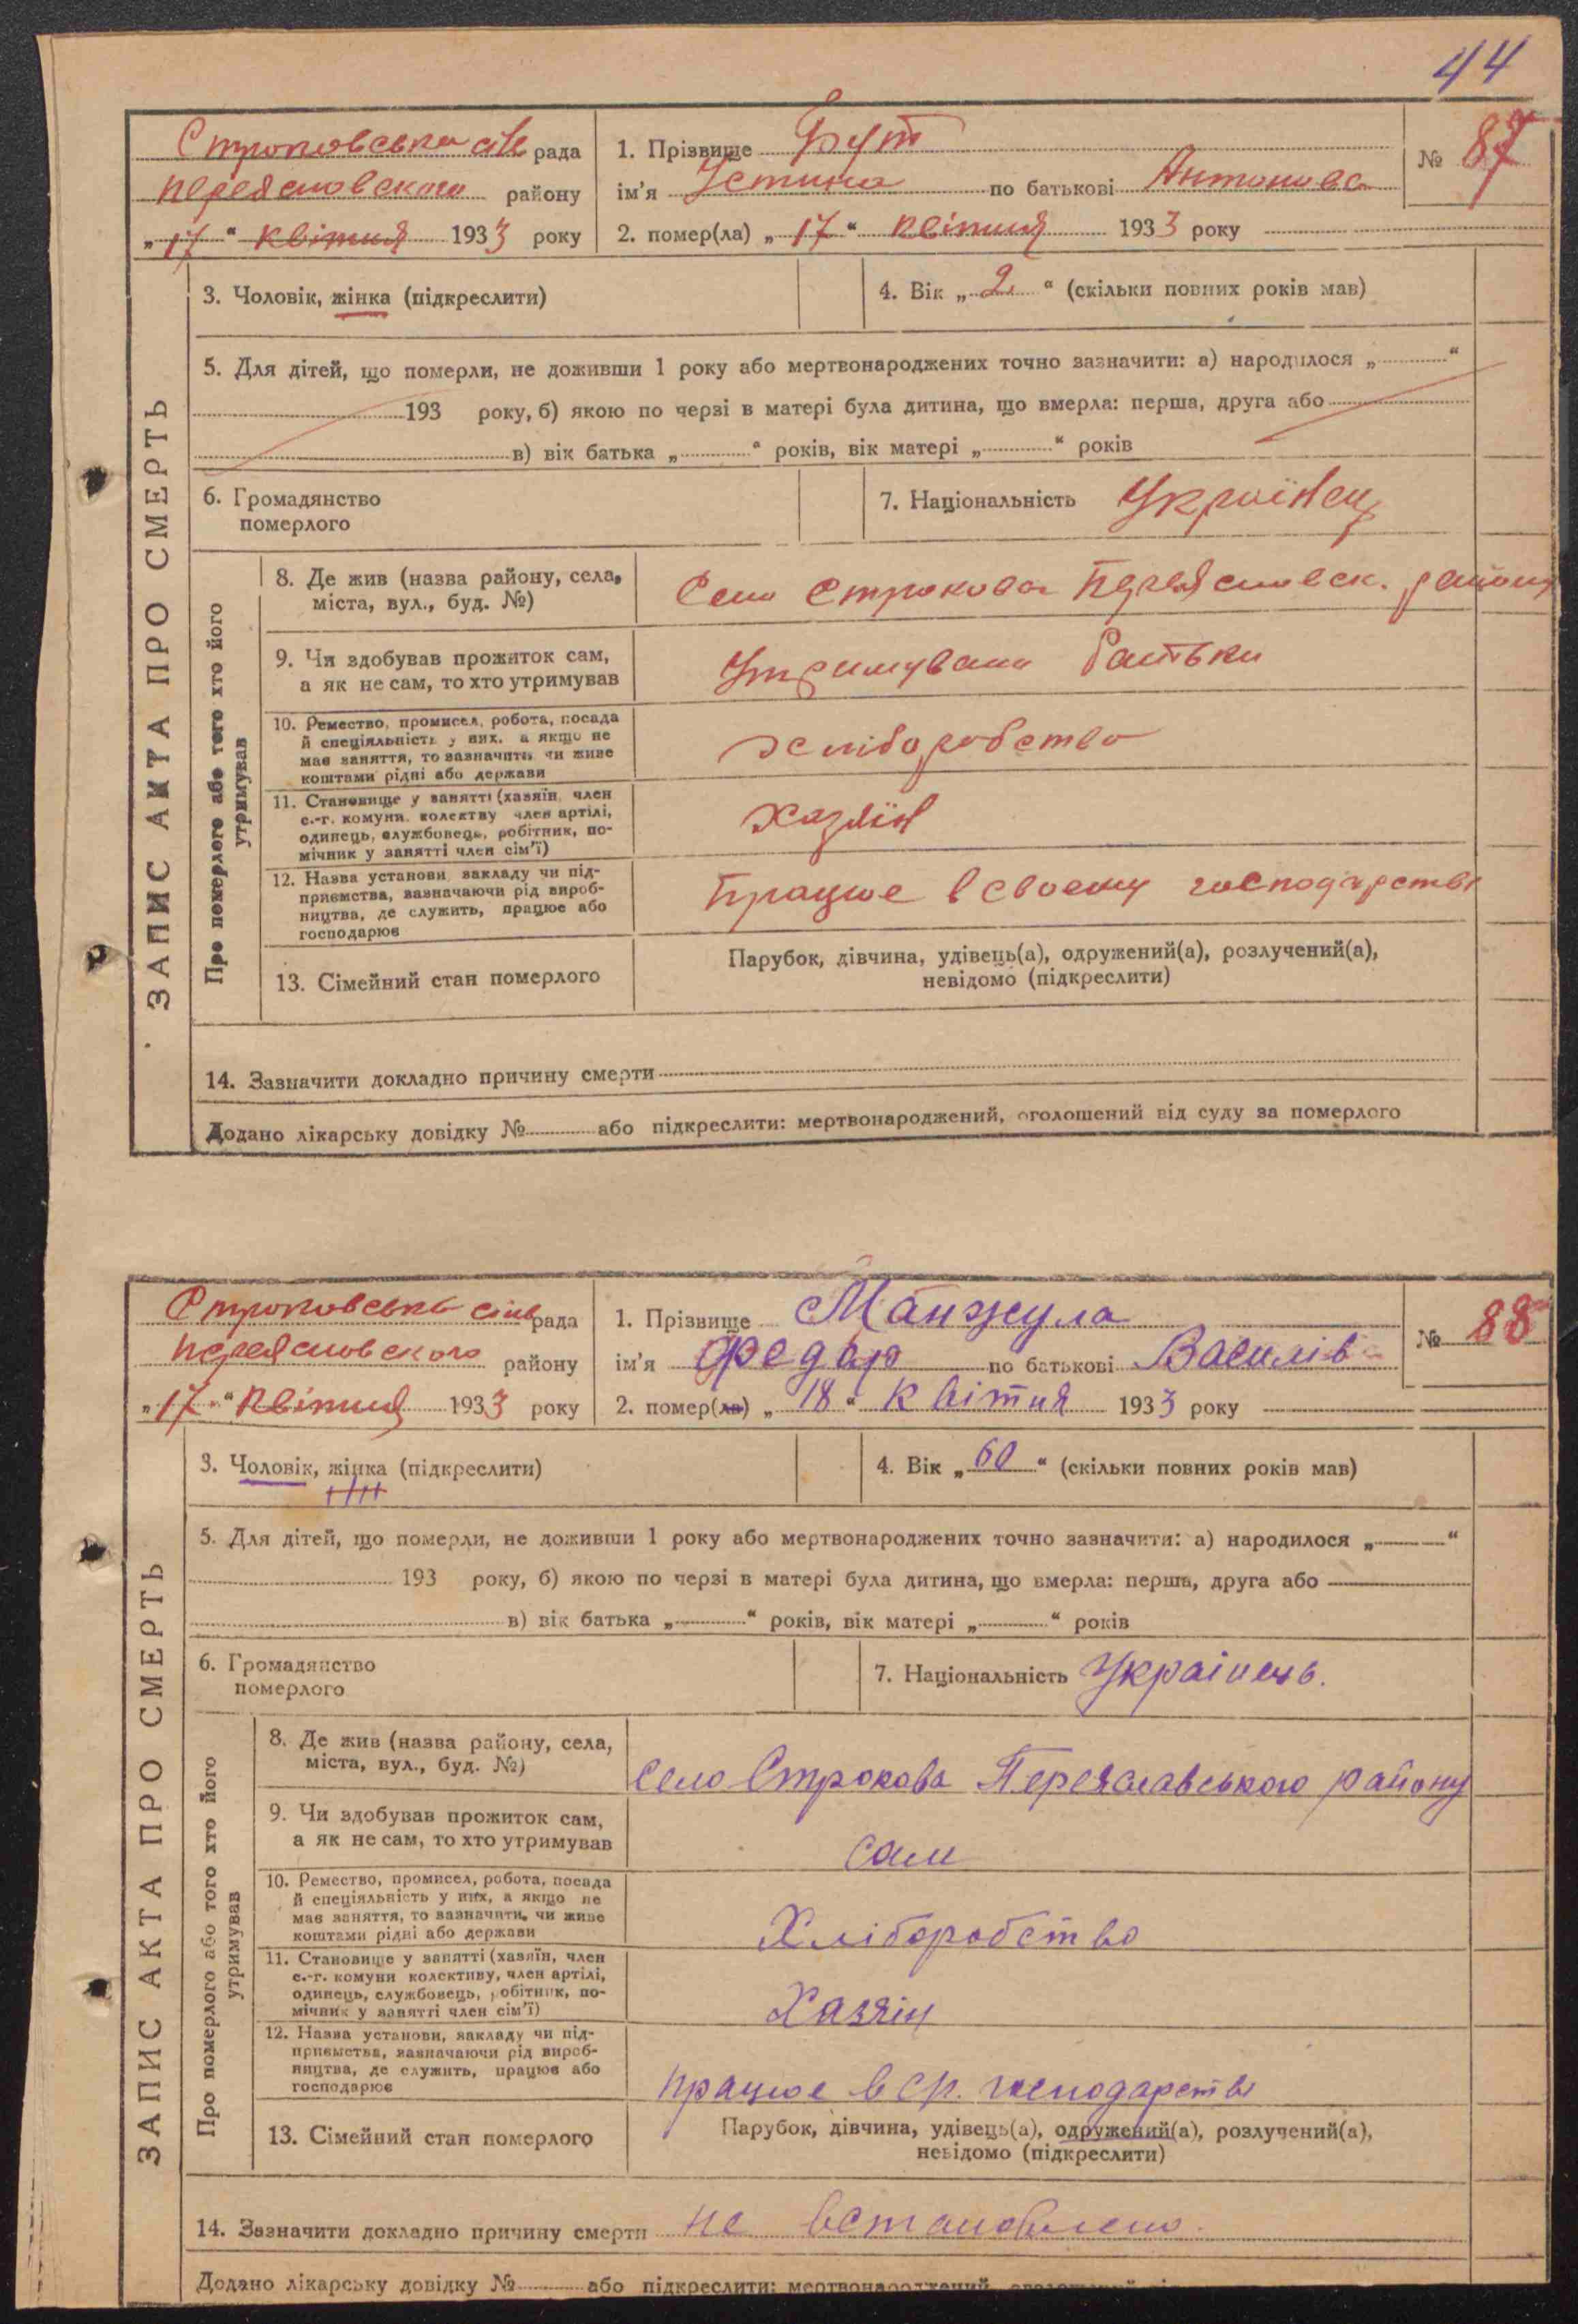 44
Строковська сіль рада
Переяслoвского району
„17“ квітня 1933 року
1. Прізвище Бут
ім'я Устина по батькові Антонова
2. помер(ла) „17“ квітня 1933 року
№ 87
ЗАПИС АКТА ПРО СМЕРТЬ
3. Чоловік, жінка (підкреслити)
4. Вік „2“ (скільки повних років мав)
5. Для дітей, що померли, не доживши 1 року або мертвонароджених точно зазначити: а) народилося „ “
193 року, б) якою по черзі в матері була дитина, що вмерла: перша, друга або
в) вік батька „ “ років, вік матері „ “ років
6. Громадянство
померлого
7. Національність Українец
Про померлого або того хто його
утримував
8. Де жив (назва району, села,
міста, вул., буд. №)
Село Строкова Переясловск. району
9. Чи здобував прожиток сам,
а як не сам, то хто утримував
Утримували батьки
10. Ремество, промисел, робота, посада
й спеціяльність у них, а якщо не
має заняття, то зазначити чи живе
коштами рідні або держави
хліборобство
11. Становище у занятті (хазяїн, член
с.-г. комуни, колектву член артілі,
одинець, службовець, робітник, по-
мічник у занятті член сім'ї)
Хазяїн
12. Назва установи, закладу чи під-
приємства, зазначаючи рід вироб-
ництва, де служить, працює або
господарює
Працює в своему господарстві
13. Сімейний стан померлого
Парубок, дівчина, удівець(а), одружений(а), розлучений(а),
невідомо (підкреслити)
14. Зазначити докладно причину смерти
Додано лікарську довідку № або підкреслити: мертвонароджений, оголошений від суду за померлого
Строковська сіль рада
Переяслoвского району
„17“ квітня 1933 року
1. Прізвище Манжула
ім'я Федір по батькові Василів
2. помер(ла) „18“ квітня 1933 року
№ 88
ЗАПИС АКТА ПРО СМЕРТЬ
3. Чоловік, жінка (підкреслити)
4. Вік „60“ (скільки повних років мав)
5. Для дітей, що померли, не доживши 1 року або мертвонароджених точно зазначити: а) народилося „ “
193 року, б) якою по черзі в матері була дитина, що вмерла: перша, друга або
в) вік батька „ “ років, вік матері „ “ років
6. Громадянство
померлого
7. Національність Украінець.
Про померлого або того хто його
утримував
8. Де жив (назва району, села,
міста, вул., буд. №)
село Строкова Переяславського району
9. Чи здобував прожиток сам,
а як не сам, то хто утримував
сам
10. Ремество, промисел, робота, посада
й спеціяльність у них, а якщо не
має заняття, то зазначити, чи живе
коштами рідні або держави
Хліборобство
11. Становище у занятті (хазяїн, член
с.-г. комуни колективу, член артілі,
одинець, службовець, робітник, по-
мічник у занятті член сім'ї)
Хазяін
12. Назва установи, закладу чи під-
приємства, зазначаючи рід вироб-
ництва, де служить, працює або
господарює
працює в ср. господарстві
13. Сімейний стан померлого
Парубок, дівчина, удівець(а), одружений(а), розлучений(а),
невідомо (підкреслити)
14. Зазначити докладно причину смерти не встановлено.
Додано лікарську довідку № або підкреслити: мертвонароджений